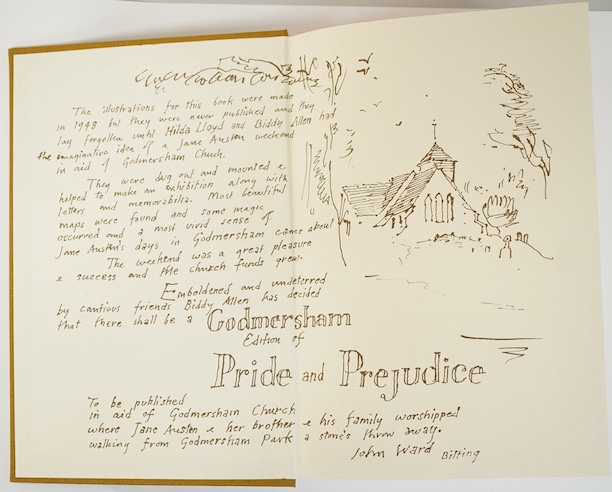 The illustrations for this book were made
in 1948 but they were never published and they
lay forgotten until Hilda Lloyd and Biddy Allen had
the imaginative idea of a Jane Austen weekend
in aid of Godmersham Church.
They were dug out and mounted &
helped to make an exhibition along with
letters and memorabilia. Most beautiful
maps were found and some magic
occurred and a most vivid sense of
Jane Austen's days in Godmersham came about
The weekend was a great pleasure
& success and the church funds grew.
Emboldened and undeterred
by cautious friends Biddy Allen has decided
that there shall be a Godmersham
Edition of
Pride and Prejudice
To be published
in aid of Godmersham Church
where Jane Austen & her brother & his family worshipped
walking from Godmersham Park a stone's throw away.
John Ward Bilting